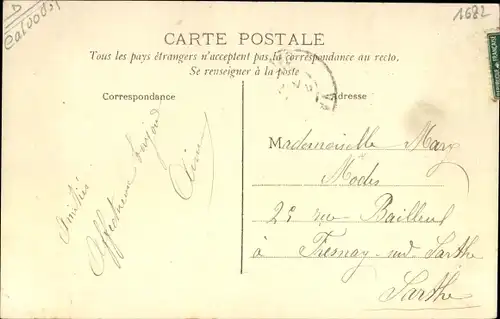 Calvados
1682
CARTE POSTALE
Tous les pays étrangers n'acceptent pas la correspondance au recto.
Se renseigner à la poste
Correspondance
Adresse
Amitiés
Affectueux
Mademoiselle Mary
Modes
rue Bailleul
à Fresnay sur Sarthe
Sarthe